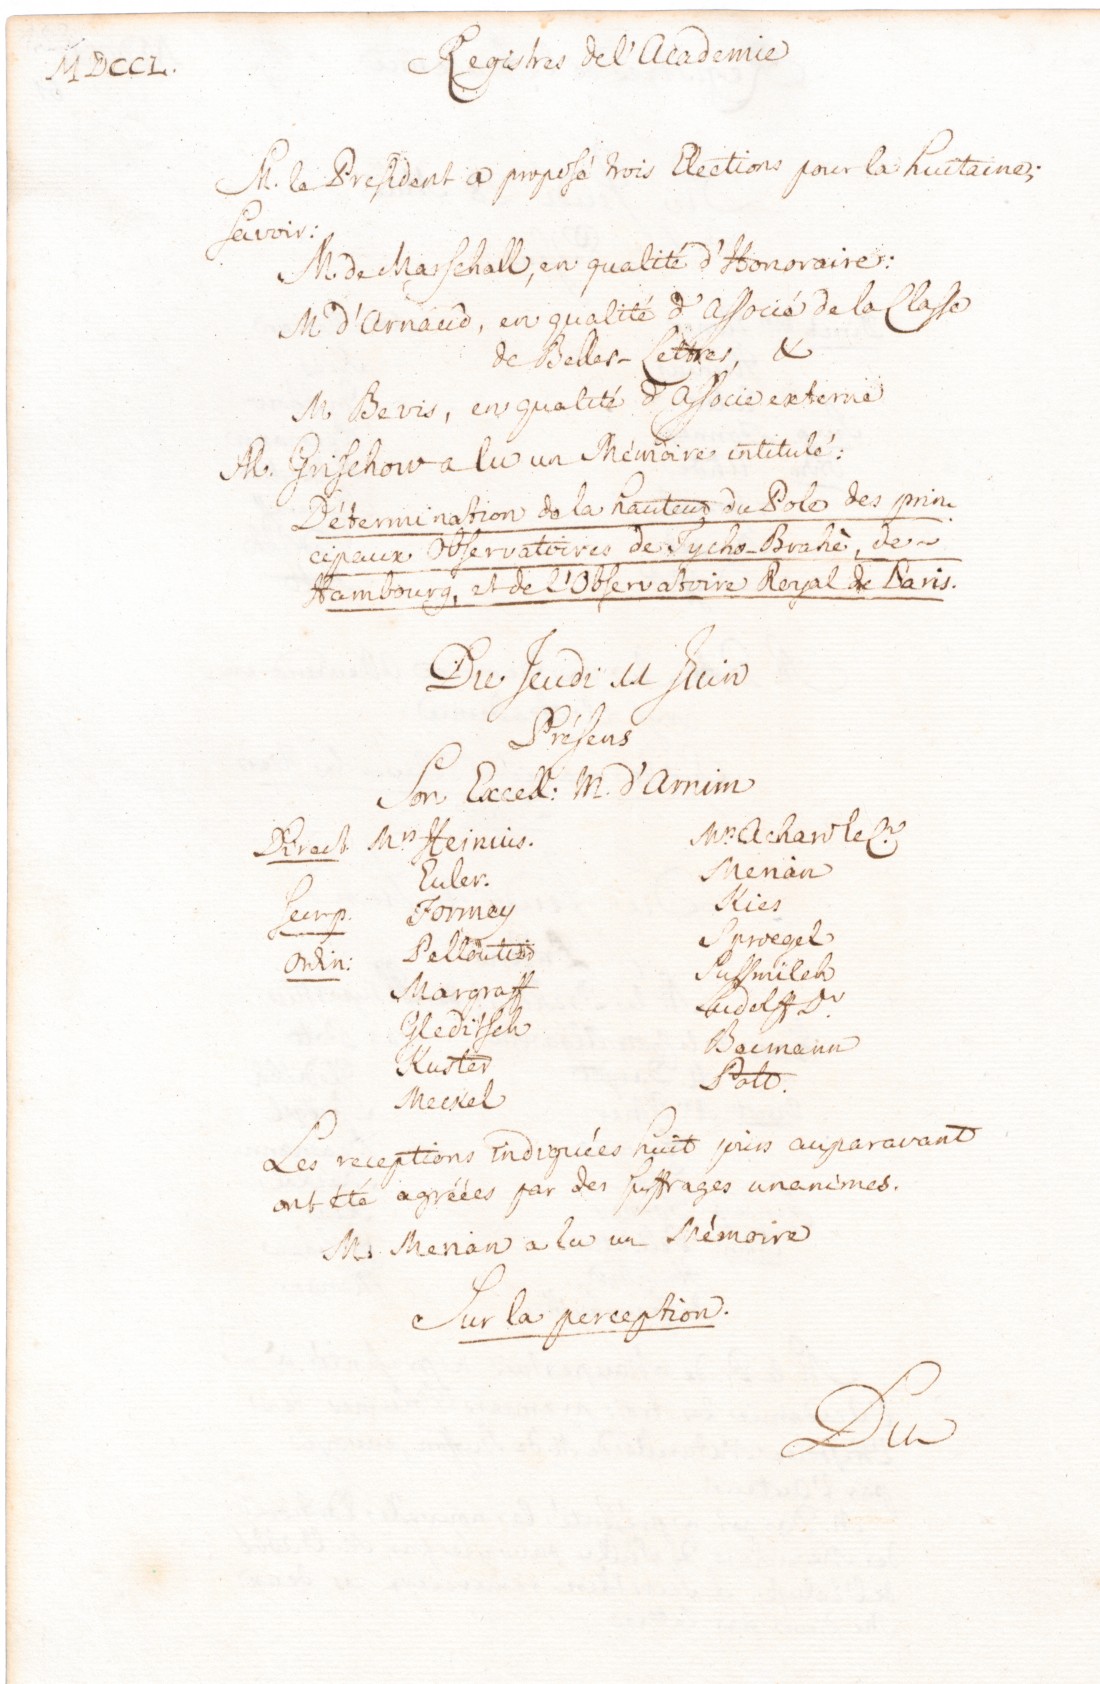 MDCCL.
Registres de l'Academie
M. le President a proposé trois Elections pour la huitaine;
savoir:
M. de Marschall, en qualité d'Honoraire:
M. d'Arnaud, en qualité d'Associé de la Classe
de Belles-Lettres, &
M. Bevis, en qualité d'Associé externe
M. Grischow a lu un Mémoire intitulé:
Détermination de la hauteur du Pole des prin-
cipaux Observatoires de Tycho-Brahé, de
Hambourg, et de l'Observatoire Royal de Paris.
Du Jeudi 11 Juin
Présens
Son Excell: M. d'Arnim
Direct. Mrs Heinius.
Euler.
Secr. p. Formey
Ordin: Pelloutier
Margraff
Gleditsch
Kuster
Meckel
Mrs Achard le C.
Merian
Kies
Sproegel
Sussmilch
Ludolff Dr.
Becmann
Pott.
Les receptions indiquées huit jours auparavant
ont été agréées par des suffrages unanimes.
M. Merian a lu un Mémoire
Sur la perception.
Du